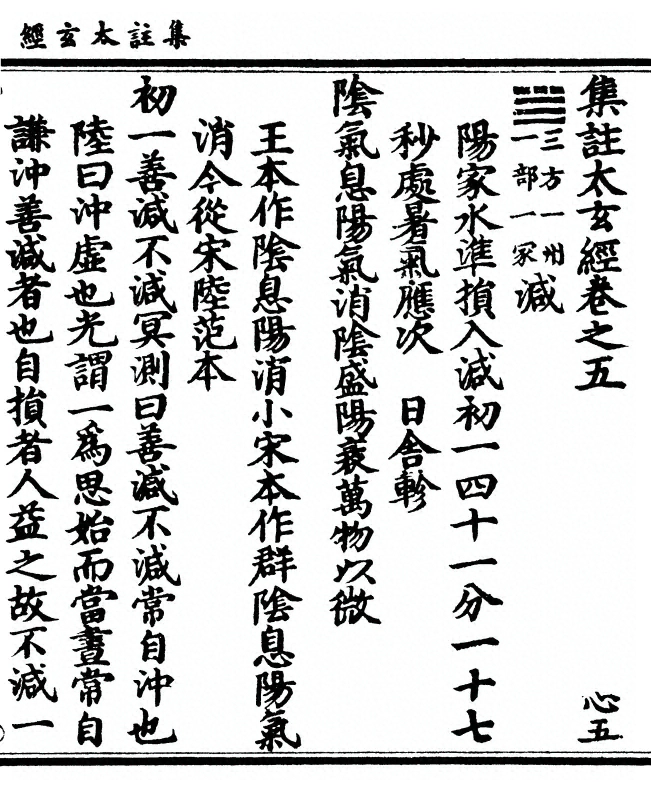 集註太玄經
集註太玄經卷之五 心五
三方一州
一部一家
減
陽家水準損入減初一四十一分一十七
秒處暑氣應次 日舍軫
陰氣息陽氣消陰盛陽衰萬物以微
王本作陰息陽消小宋本作群陰息陽氣
消今從宋陸范本
初一善減不減冥測曰善減不減常自沖也
陸曰沖虛也光謂一為思始而當晝常自
謙沖善減者也自損者人益之故不減一